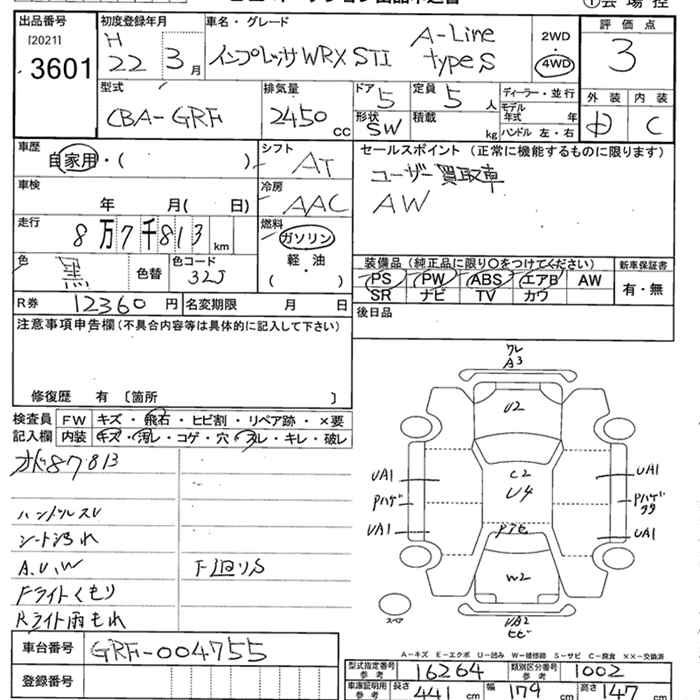 出品番号
[2021]
3601
初度登録年月
H
22 3月
車名・グレード
インプレッサ WRX STI
A-Line
type S
2WD
・
4WD
評価点
3
型式
CBA-GRF
排気量
2450
cc
ドア
5
定員
5 人
形状
SW
積載
kg
ディーラー・並行
モデル
年式 年
ハンドル 左・右
外装
D
内装
C
車歴
自家用・( )
シフト
AT
車検
年 月( 日)
冷房
AAC
走行
8万7千813 km
燃料
ガソリン
軽・油
( )
色
黒
色替
色コード
32J
R券
12360 円
名変期限 月 日
セールスポイント (正常に機能するものに限ります)
ユーザー買取車
AW
装備品 (純正品に限り○をつけてください)
PS PW ABS エアB AW
SR ナビ TV カワ
新車保証書
有・無
後日品
注意事項申告欄 (不具合内容等は具体的に記入して下さい)
修復歴 有 [箇所 ]
検査員
記入欄
FW キズ・飛石・ヒビ割・リペア跡・×要
内装 キズ・汚レ・コゲ・穴・スレ・キレ・破レ
87813
ハンドルスレ
シート汚れ
A.U.W
Fライトくもり
Rライト雨もれ
ワレ
A3
U2
C2
U4
UA1
UA1
Pハゲ
Pハゲ
UA1
UA1
W2
スペア
UA2
ヒビ
A-キズ E-エクボ U-凹み W-補修跡 S-サビ C-腐食 XX-交換済
車台番号
GRF-004755
登録番号
型式指定番号
参考
16264
類別区分番号
参考
1002
車庫証明用
参考
長さ
441 cm
幅
179 cm
高さ
147 cm